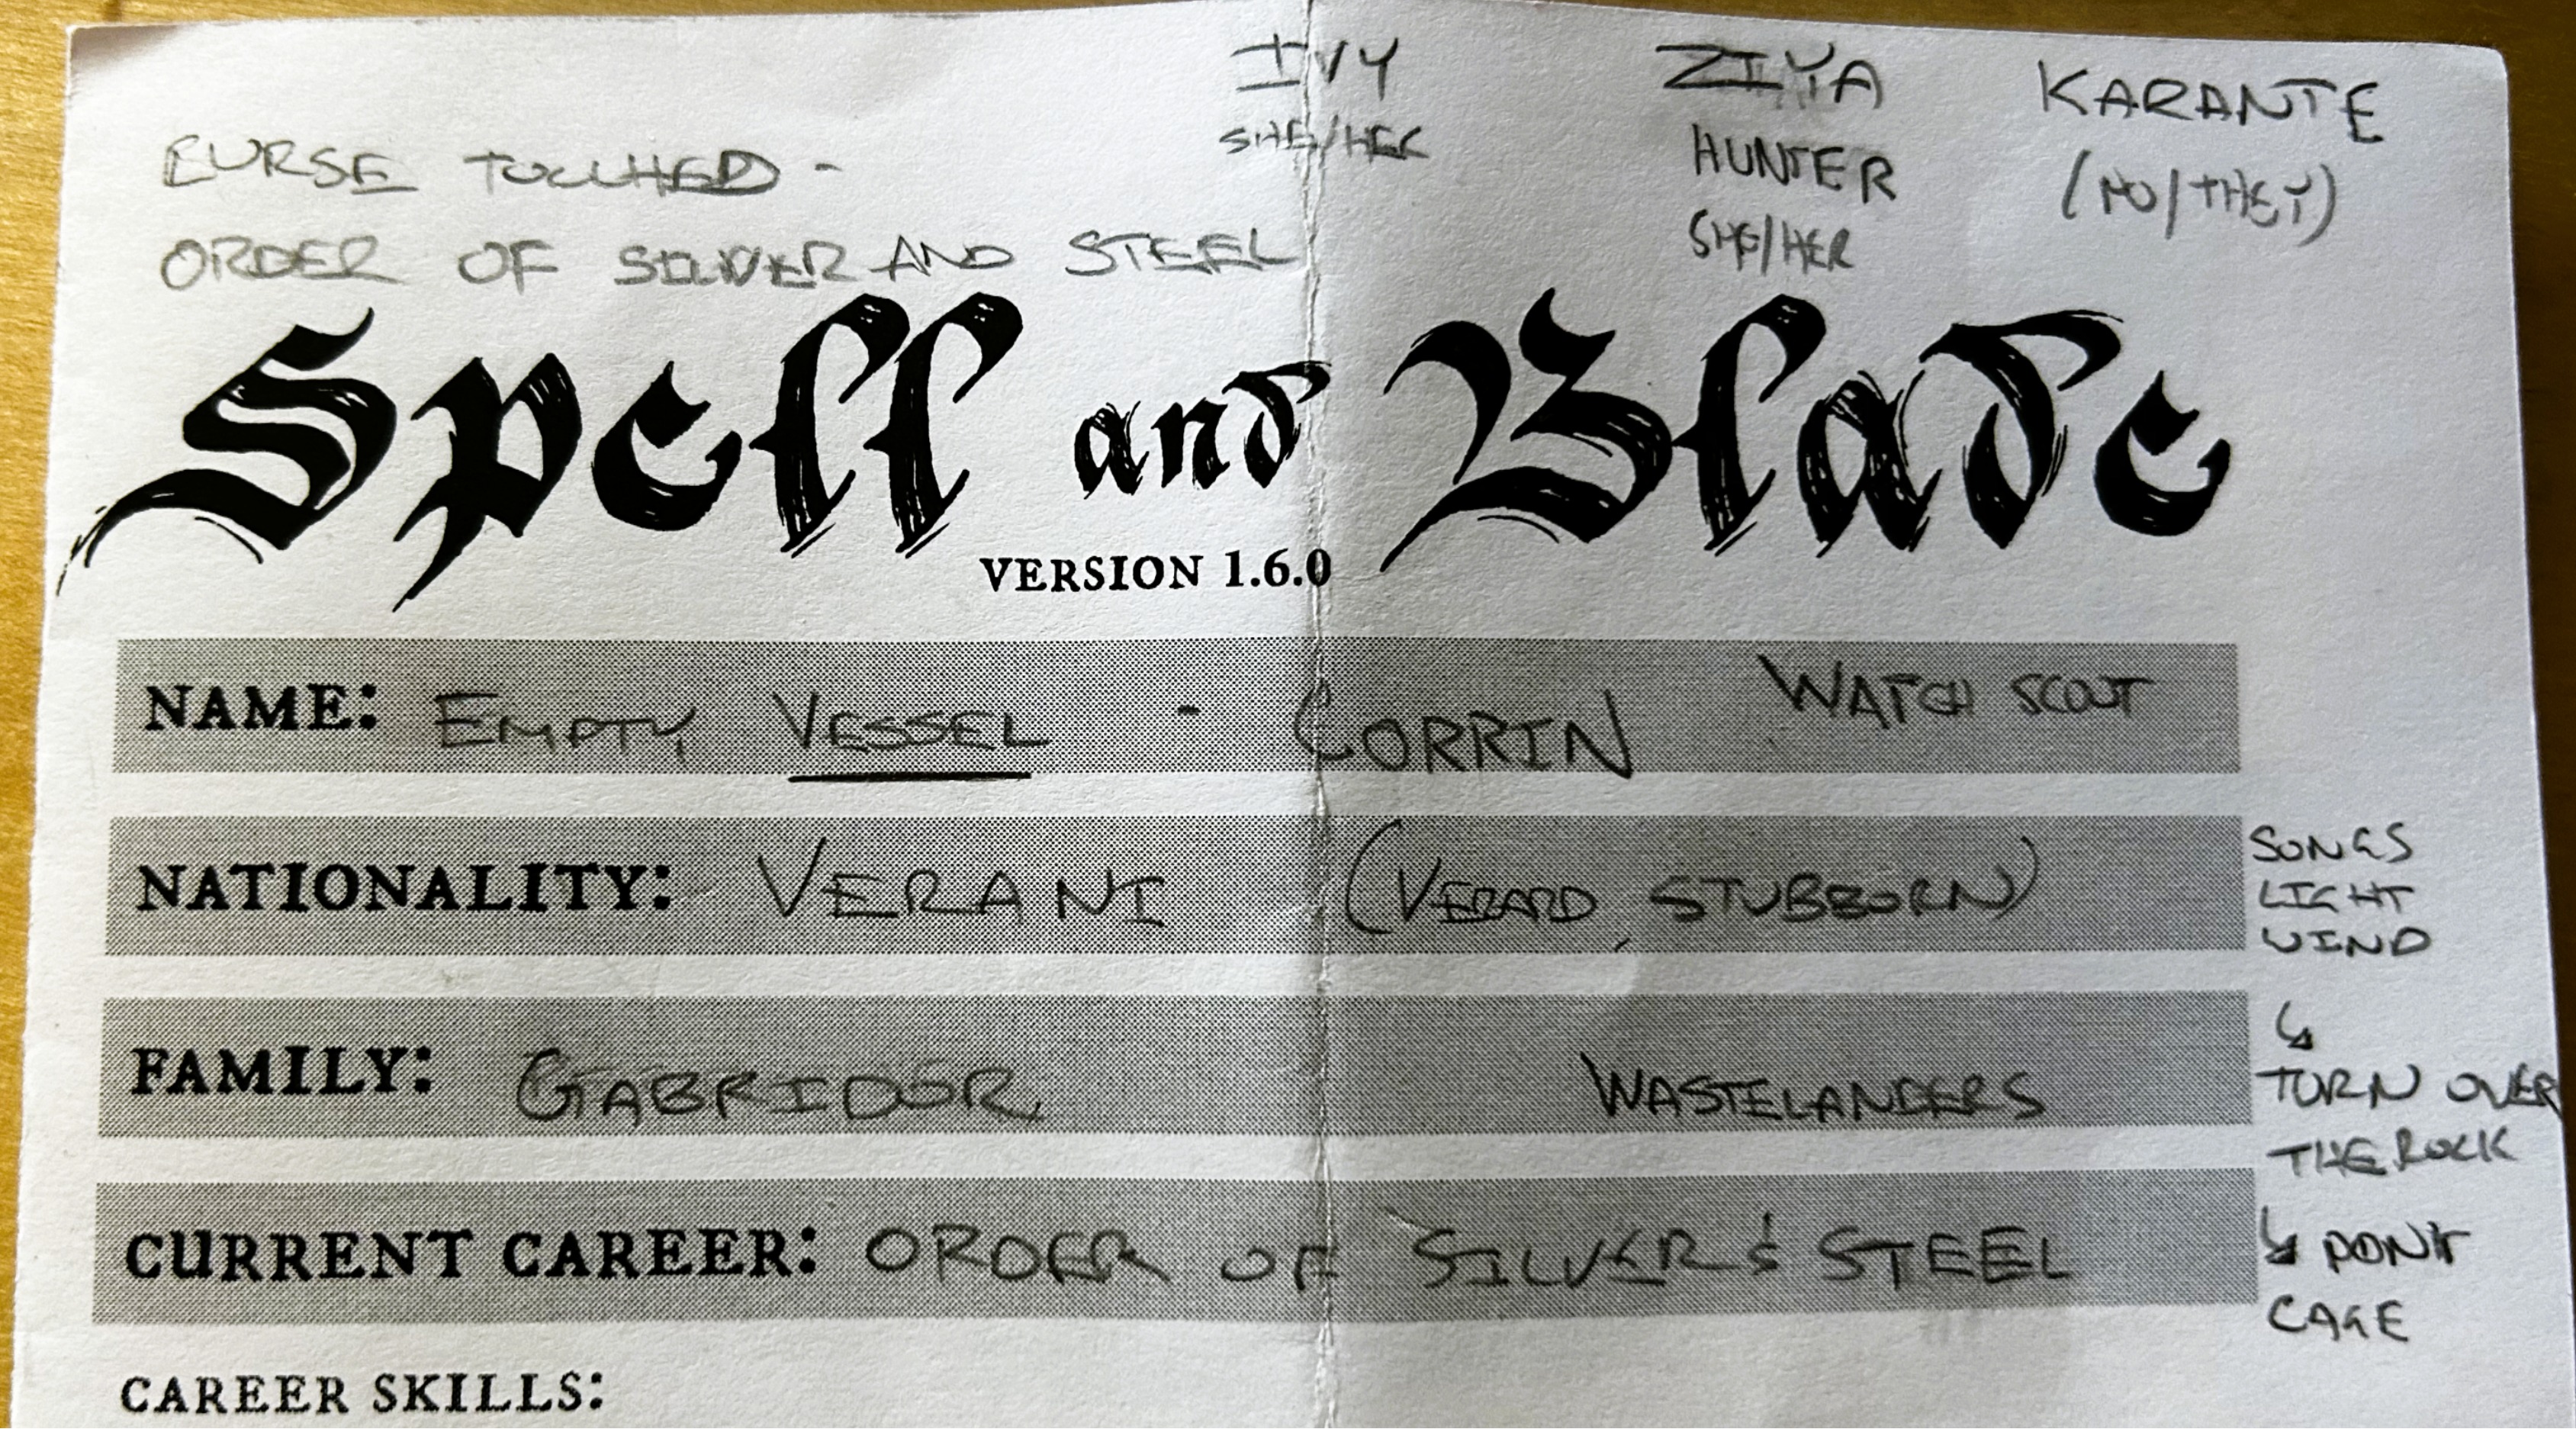 IVY
SHE/HER
ZIYA
HUNTER
SHE/HER
KARANTE
(NO/THEY)
CURSE TOUCHED -
ORDER OF SILVER AND STEEL
Spell and Blade
VERSION 1.6.0
NAME: EMPTY VESSEL - CORRIN WATCH SCOUT
NATIONALITY: VERANI (VERARD, STUBBORN)
SONGS
LIGHT
WIND
FAMILY: GABRIDOR WASTELANDERS
↳
TURN OVER
THE ROCK
CURRENT CAREER: ORDER OF SILVER & STEEL
↳ DON'T
CAGE
CAREER SKILLS: